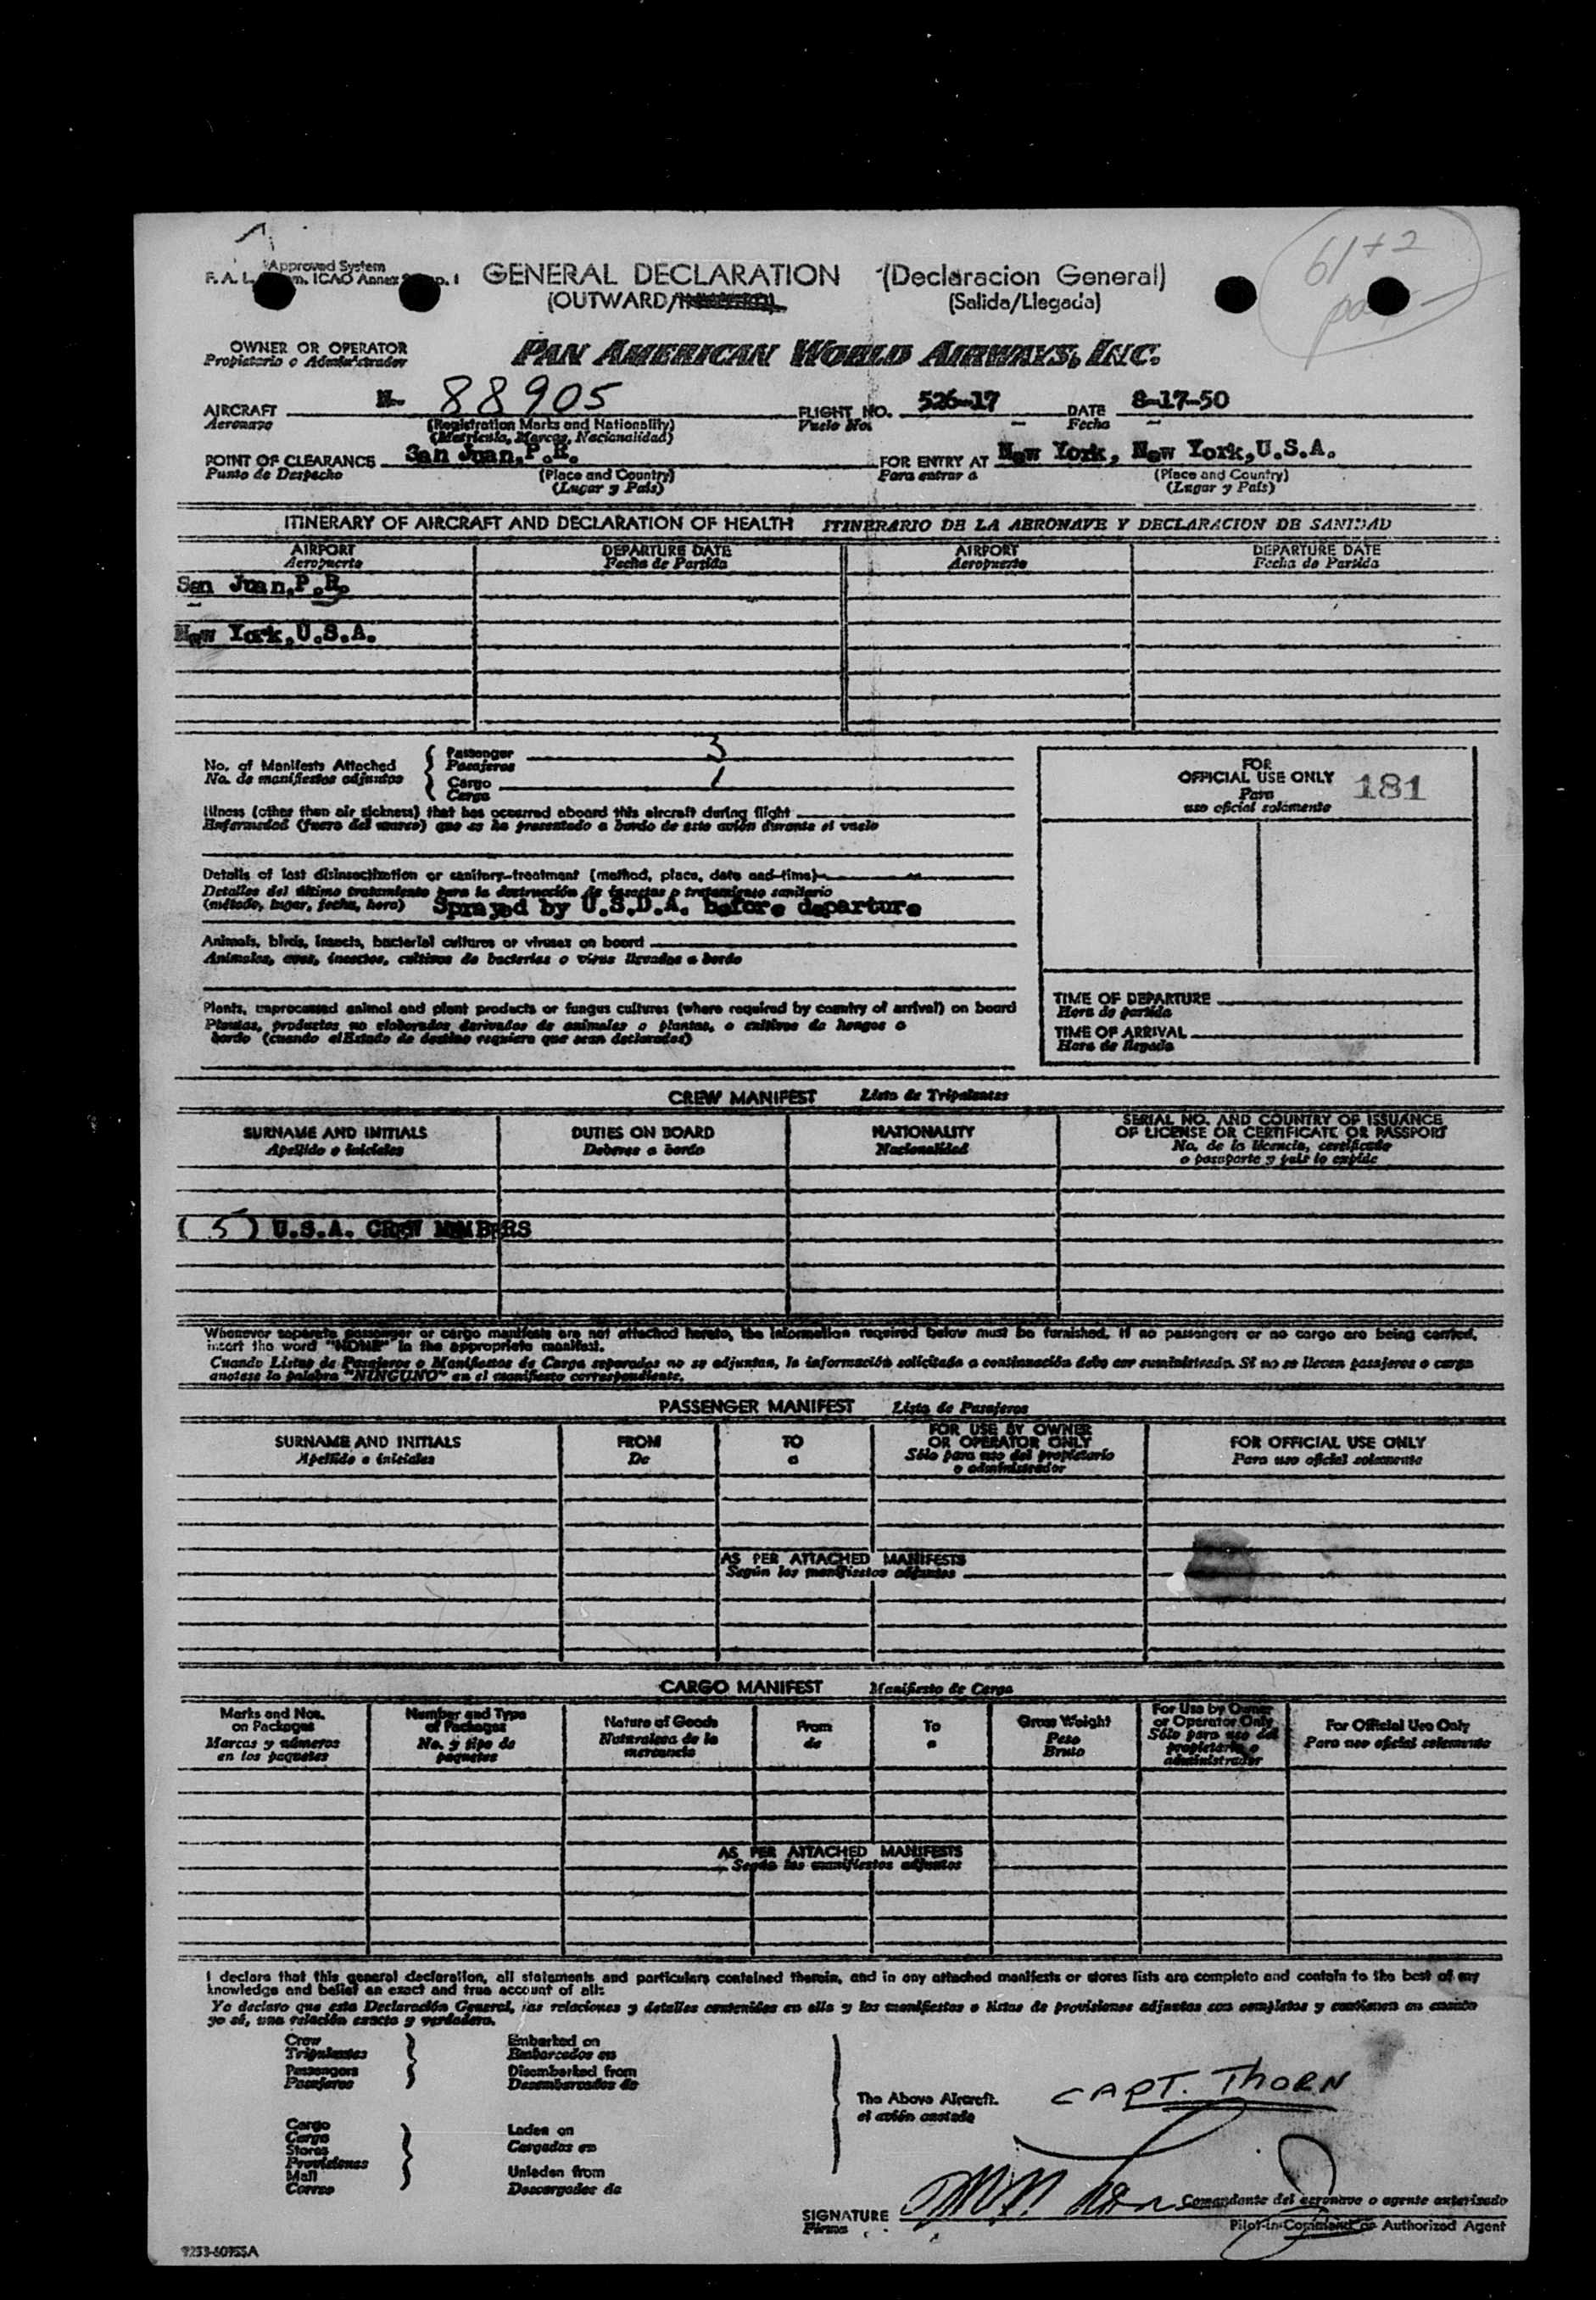 Approved System
F. A. L. m. ICAO Annex
GENERAL DECLARATION (Declaracion General)
(OUTWARD/ (Salida/Llegada)
61+2
OWNER OR OPERATOR
Propietario o Administrador
PAN AMERICAN WORLD AIRWAYS, INC.
AIRCRAFT N- 88905 FLIGHT NO. 526-17 DATE 8-17-50
Aeronave (Registration Marks and Nationality) Vuelo No. Fecha
(Matricula, Marcas, Nacionalidad)
POINT OF CLEARANCE San Juan,P.R. FOR ENTRY AT New York, New York,U.S.A.
Punto de Despacho (Place and Country) Para entrar a (Place and Country)
(Lugar y País) (Lugar y País)
ITINERARY OF AIRCRAFT AND DECLARATION OF HEALTH ITINERARIO DE LA AERONAVE Y DECLARACION DE SANIDAD
AIRPORT DEPARTURE DATE AIRPORT DEPARTURE DATE
Aeropuerto Fecha de Partida Aeropuerto Fecha de Partida
San Juan,P.R.
New York,U.S.A.
No. of Manifests Attached
No. de manifiestos adjuntos
Passenger 3
Pasajeros
Cargo 1
Carga
FOR
OFFICIAL USE ONLY 181
Para
uso oficial solamente
Illness (other than air sickness) that has occurred aboard this aircraft during flight
Enfermedad (fuera del mareo) que se ha presentado a bordo de este avión durante el vuelo
Details of last disinsectization or sanitary-treatment (method, place, date and time)
Detalles del último tratamiento para la destrucción de insectos o tratamiento sanitario
(método, lugar, fecha, hora) Sprayed by U.S.D.A. before departure
Animals, birds, insects, bacterial cultures or viruses on board
Animales, aves, insectos, cultivos de bacterias o virus llevados a bordo
Plants, unprocessed animal and plant products or fungus cultures (where required by country of arrival) on board
Plantas, productos no elaborados derivados de animales o plantas, o cultivos de hongos a
bordo (cuando el Estado de destino requiera que sean declarados)
TIME OF DEPARTURE
Hora de partida
TIME OF ARRIVAL
Hora de llegada
CREW MANIFEST Lista de Tripulantes
SURNAME AND INITIALS DUTIES ON BOARD NATIONALITY SERIAL NO. AND COUNTRY OF ISSUANCE
OF LICENSE OR CERTIFICATE OR PASSPORT
Apellido e iniciales Deberes a bordo Nacionalidad No. de la licencia, certificado
o pasaporte y país lo expide
( 5 ) U.S.A. CREW MEMBERS
Whenever separate passenger or cargo manifests are not attached hereto, the information required below must be furnished. If no passengers or no cargo are being carried,
insert the word "NONE" in the appropriate manifest.
Cuando Listas de Pasajeros o Manifiestos de Carga separados no se adjuntan, la información solicitada a continuación debe ser suministrada. Si no se llevan pasajeros o carga
anotese la palabra "NINGUNO" en el manifiesto correspondiente.
PASSENGER MANIFEST Lista de Pasajeros
SURNAME AND INITIALS FROM TO FOR USE BY OWNER
OR OPERATOR ONLY FOR OFFICIAL USE ONLY
Apellido e iniciales De a Sólo para uso del propietario
o administrador Para uso oficial solamente
AS PER ATTACHED MANIFESTS
Según los manifiestos adjuntos
CARGO MANIFEST Manifiesto de Carga
Marks and Nos.
on Packages
Marcas y números
en los paquetes
Number and Type
of Packages
No. y tipo de
paquetes
Nature of Goods
Naturaleza de la
mercancía
From
de
To
a
Gross Weight
Peso
Bruto
For Use by Owner
or Operator Only
Sólo para uso del
propietario o
administrador
For Official Use Only
Para uso oficial solamente
AS PER ATTACHED MANIFESTS
Según los manifiestos adjuntos
I declare that this general declaration, all statements and particulars contained therein, and in any attached manifests or stores lists are complete and contain to the best of my
knowledge and belief an exact and true account of all:
Yo declaro que esta Declaración General, las relaciones y detalles contenidos en ella y los manifiestos o listas de provisiones adjuntos son completos y contienen en cuanto
yo sé, una relación exacta y verdadera.
Crew
Tripulantes
Passengers
Pasajeros
Embarked on
Embarcados en
Disembarked from
Desembarcados de
Cargo
Carga
Stores
Provisiones
Mail
Correo
Laden on
Cargados en
Unladen from
Descargados de
The Above Aircraft.
el avión anotado
CAPT. THORN
SIGNATURE
Firma
Comandante del aeronave o agente autorizado
Pilot-in-Command or Authorized Agent